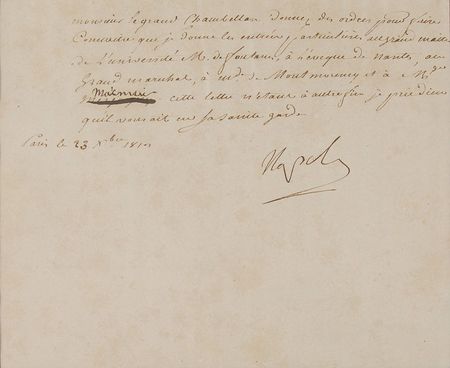 monsieur le grand Chambellan donnez des ordres pour faire
Connaitre que je donne les entrées particulieres au grand maitre
de l'université M. de fontanes, à l'eveque de nantes, au
Grand marechal, à mde de Montmorency et à M.
cette lettre n'etant à autre fin je prie dieu
qu'il vous ait en sa sainte garde
Paris le 23 Xbre 1810
Nap